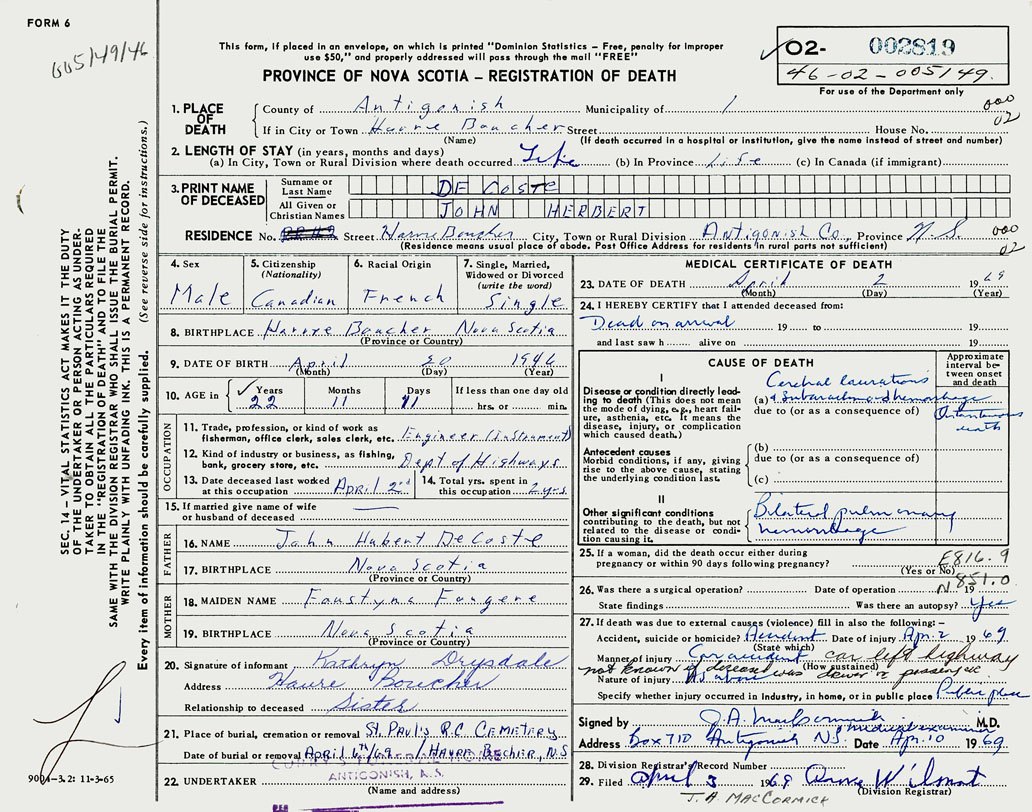 FORM 6
005149/46
This form, if placed in an envelope, on which is printed "Dominion Statistics – Free, penalty for improper
use $50," and properly addressed will pass through the mail "FREE"
PROVINCE OF NOVA SCOTIA – REGISTRATION OF DEATH
02- 002819
46-02-005149.
For use of the Department only
1. PLACE OF DEATH
County of Antigonish Municipality of /
000
02
If in City or Town Havre Boucher Street House No.
(Name) (If death occurred in a hospital or institution, give the name instead of street and number)
2. LENGTH OF STAY (in years, months and days)
(a) In City, Town or Rural Division where death occurred Life (b) In Province Life (c) In Canada (if immigrant)
3. PRINT NAME OF DECEASED
Surname or Last Name DE COSTE
All Given or Christian Names JOHN HERBERT
RESIDENCE No. Street Havre Boucher City, Town or Rural Division Antigonish Co. Province N.S.
000
02
(Residence means usual place of abode. Post Office Address for residents in rural parts not sufficient)
4. Sex
Male
5. Citizenship
(Nationality)
Canadian
6. Racial Origin
French
7. Single, Married,
Widowed or Divorced
(write the word)
Single
8. BIRTHPLACE Havre Boucher Nova Scotia
(Province or Country)
9. DATE OF BIRTH April 20 1946
(Month) (Day) (Year)
10. AGE in
Years 22
Months 11
Days 11
If less than one day old
hrs. or min.
OCCUPATION
11. Trade, profession, or kind of work as
fisherman, office clerk, sales clerk, etc. Engineer (instrument)
12. Kind of industry or business, as fishing,
bank, grocery store, etc. Dept of Highways
13. Date deceased last worked
at this occupation APRIL 2nd
14. Total yrs. spent in
this occupation 2 yrs
15. If married give name of wife
or husband of deceased —
FATHER
16. NAME John Hubert DeCoste
17. BIRTHPLACE Nova Scotia
(Province or Country)
MOTHER
18. MAIDEN NAME Faustyna Fougere
19. BIRTHPLACE Nova Scotia
(Province or Country)
20. Signature of informant Kathryn Drysdale
Address Havre Boucher
Relationship to deceased Sister
21. Place of burial, cremation or removal St. Paul's R.C. CEMETERY
Date of burial or removal APRIL 6th/69 / HAVRE BOCHER, N.S
22. UNDERTAKER
ANTIGONISH, N.S.
(Name and address)
9004–3.2: 11-3-65
MEDICAL CERTIFICATE OF DEATH
23. DATE OF DEATH April 2 1969
(Month) (Day) (Year)
24. I HEREBY CERTIFY that I attended deceased from:
Dead on arrival 19 to 19
and last saw h alive on 19
CAUSE OF DEATH
Approximate
interval be-
tween onset
and death
I
Disease or condition directly lead-
ing to death (This does not mean
the mode of dying, e.g., heart fail-
ure, asthenia, etc. It means the
disease, injury, or complication
which caused death.)
Cerebral lacerations
(a) & Subarachnoid hemorrhage
due to (or as a consequence of)
Instantaneous
death
Antecedent causes
Morbid conditions, if any, giving
rise to the above cause, stating
the underlying condition last.
(b)
due to (or as a consequence of)
(c)
II
Other significant conditions
contributing to the death, but not
related to the disease or condi-
tion causing it.
Bilateral pulmonary
hemorrhage
25. If a woman, did the death occur either during
pregnancy or within 90 days following pregnancy?
(Yes or No)
E816.9
N851.0
26. Was there a surgical operation? Date of operation 19
State findings Was there an autopsy? Yes
27. If death was due to external causes (violence) fill in also the following:–
Accident, suicide or homicide? Accident Date of injury Apr. 2 1969
(State which)
Manner of injury Car accident car left highway
(How sustained)
not known if deceased was driver or passenger
Nature of injury As above
Specify whether injury occurred in industry, in home, or in public place Public place
Signed by J.A. MacCormick M.D.
medical examiner
Address Box 710 Antigonish N.S. Date Apr. 10 1969
28. Division Registrar's Record Number
29. Filed April 3 1969
(Division Registrar)
J. A. MACCORMICK
SEC. 14 – VITAL STATISTICS ACT MAKES IT THE DUTY
OF THE UNDERTAKER OR PERSON ACTING AS UNDER-
TAKER TO OBTAIN ALL THE PARTICULARS REQUIRED
IN THE "REGISTRATION OF DEATH" AND TO FILE THE
SAME WITH THE DIVISION REGISTRAR WHO SHALL ISSUE THE BURIAL PERMIT.
WRITE PLAINLY WITH UNFADING INK. THIS IS A PERMANENT RECORD.
Every item of information should be carefully supplied. (See reverse side for instructions.)